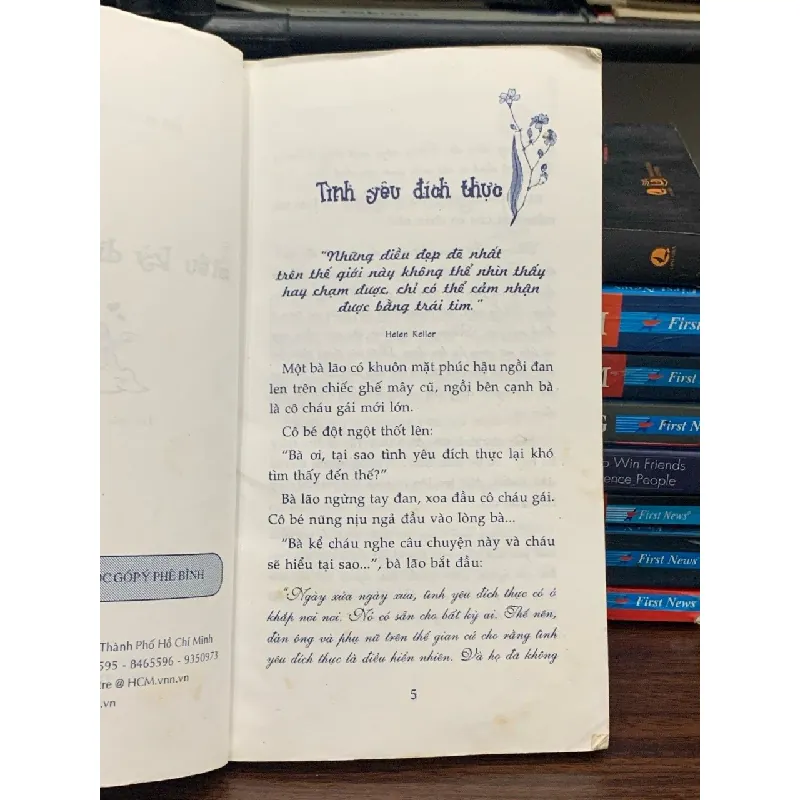 Tình yêu đích thực
“Những điều đẹp đẽ nhất
trên thế giới này không thể nhìn thấy
hay chạm được, chỉ có thể cảm nhận
được bằng trái tim.”
Helen Keller
Một bà lão có khuôn mặt phúc hậu ngồi đan
len trên chiếc ghế mây cũ, ngồi bên cạnh bà
là cô cháu gái mới lớn.
Cô bé đột ngột thốt lên:
“Bà ơi, tại sao tình yêu đích thực lại khó
tìm thấy đến thế?”
Bà lão ngừng tay đan, xoa đầu cô cháu gái.
Cô bé nũng nịu ngả đầu vào lòng bà...
“Bà kể cháu nghe câu chuyện này và cháu
sẽ hiểu tại sao...”, bà lão bắt đầu:
“Ngày xửa ngày xưa, tình yêu đích thực có ở
khắp nơi nơi. Nó có sẵn cho bất kỳ ai. Thế nên,
đàn ông và phụ nữ trên thế gian cứ cho rằng tình
yêu đích thực là điều hiển nhiên. Và họ đã không
5
ỌC GÓP Ý PHÊ BÌNH
Thành Phố Hồ Chí Minh
595 - 8465596 - 9350973
re @ HCM.vnn.vn
.vn
First
First
First N
o Win Friends
ence People
First News
First News
First News